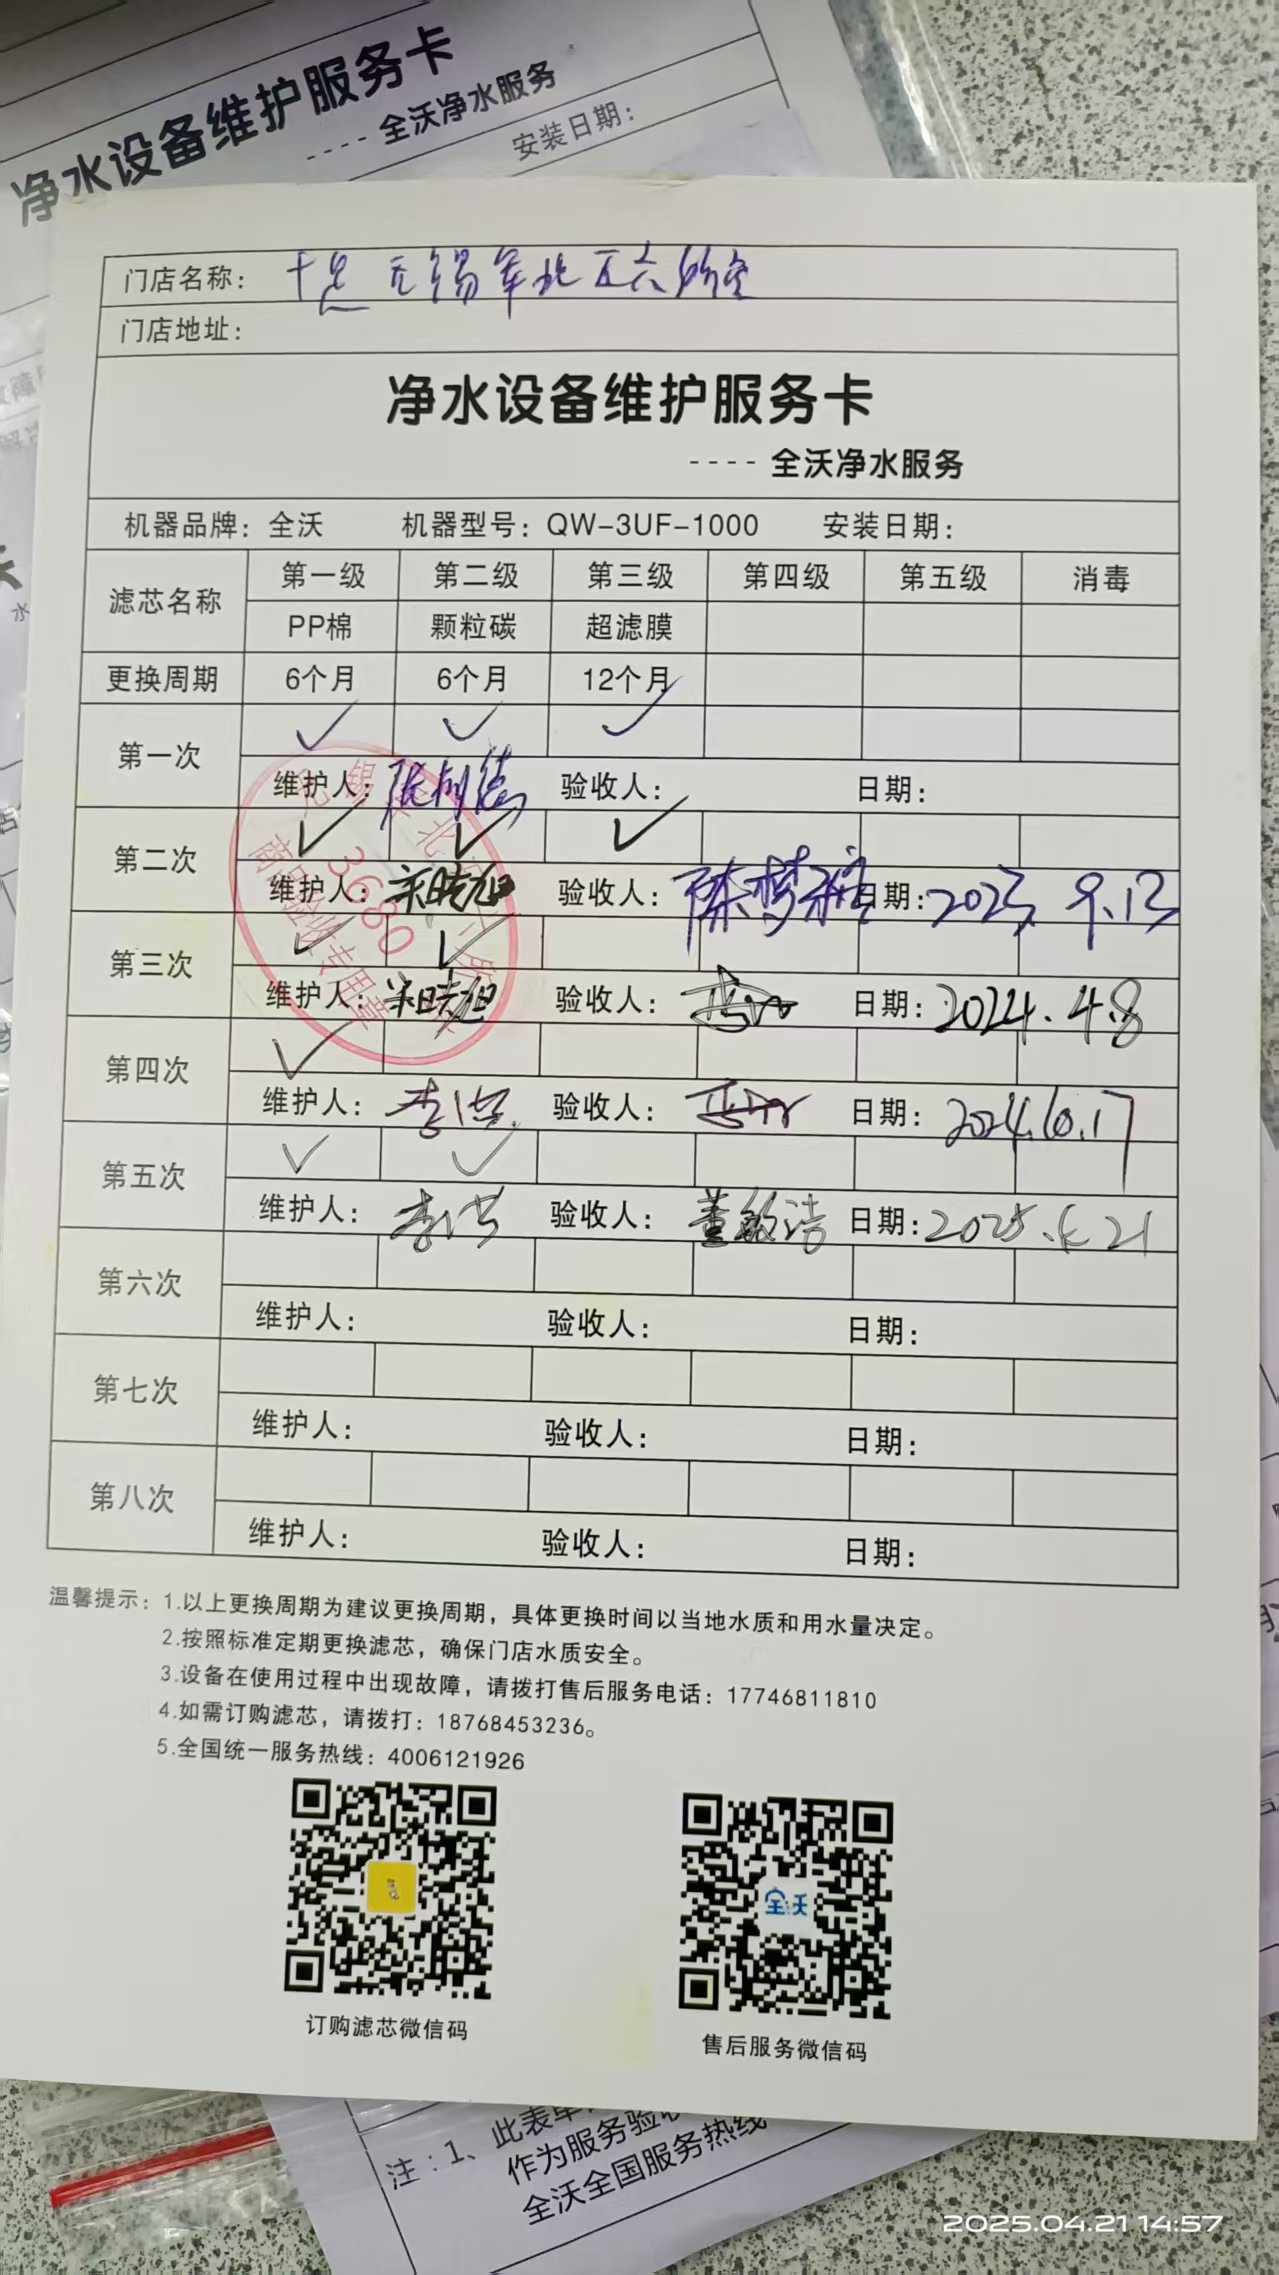 净水设备维护服务卡
---- 全沃净水服务
安装日期：
门店名称： 无锡 北 五六
门店地址：
净水设备维护服务卡
---- 全沃净水服务
机器品牌：全沃 机器型号：QW-3UF-1000 安装日期：
滤芯名称 第一级 第二级 第三级 第四级 第五级 消毒
PP棉 颗粒碳 超滤膜
更换周期 6个月 6个月 12个月
第一次 ✓ ✓ ✓
维护人： 验收人： 日期：
第二次 ✓ ✓ ✓
维护人： 验收人：陈梦 日期：2023.9.13
第三次 ✓ ✓
维护人： 验收人： 日期：2024.4.8
第四次 ✓
维护人：李 验收人： 日期：2024.10.17
第五次 ✓ ✓
维护人：李 验收人：董敏洁 日期：2025.4.21
第六次
维护人： 验收人： 日期：
第七次
维护人： 验收人： 日期：
第八次
维护人： 验收人： 日期：
3680
商品验收专用章
温馨提示：1.以上更换周期为建议更换周期，具体更换时间以当地水质和用水量决定。
2.按照标准定期更换滤芯，确保门店水质安全。
3.设备在使用过程中出现故障，请拨打售后服务电话：17746811810
4.如需订购滤芯，请拨打：18768453236。
5.全国统一服务热线：4006121926
全沃
订购滤芯微信码
售后服务微信码
注：1、此表单
作为服务验收
全沃全国服务热线
2025.04.21 14:57